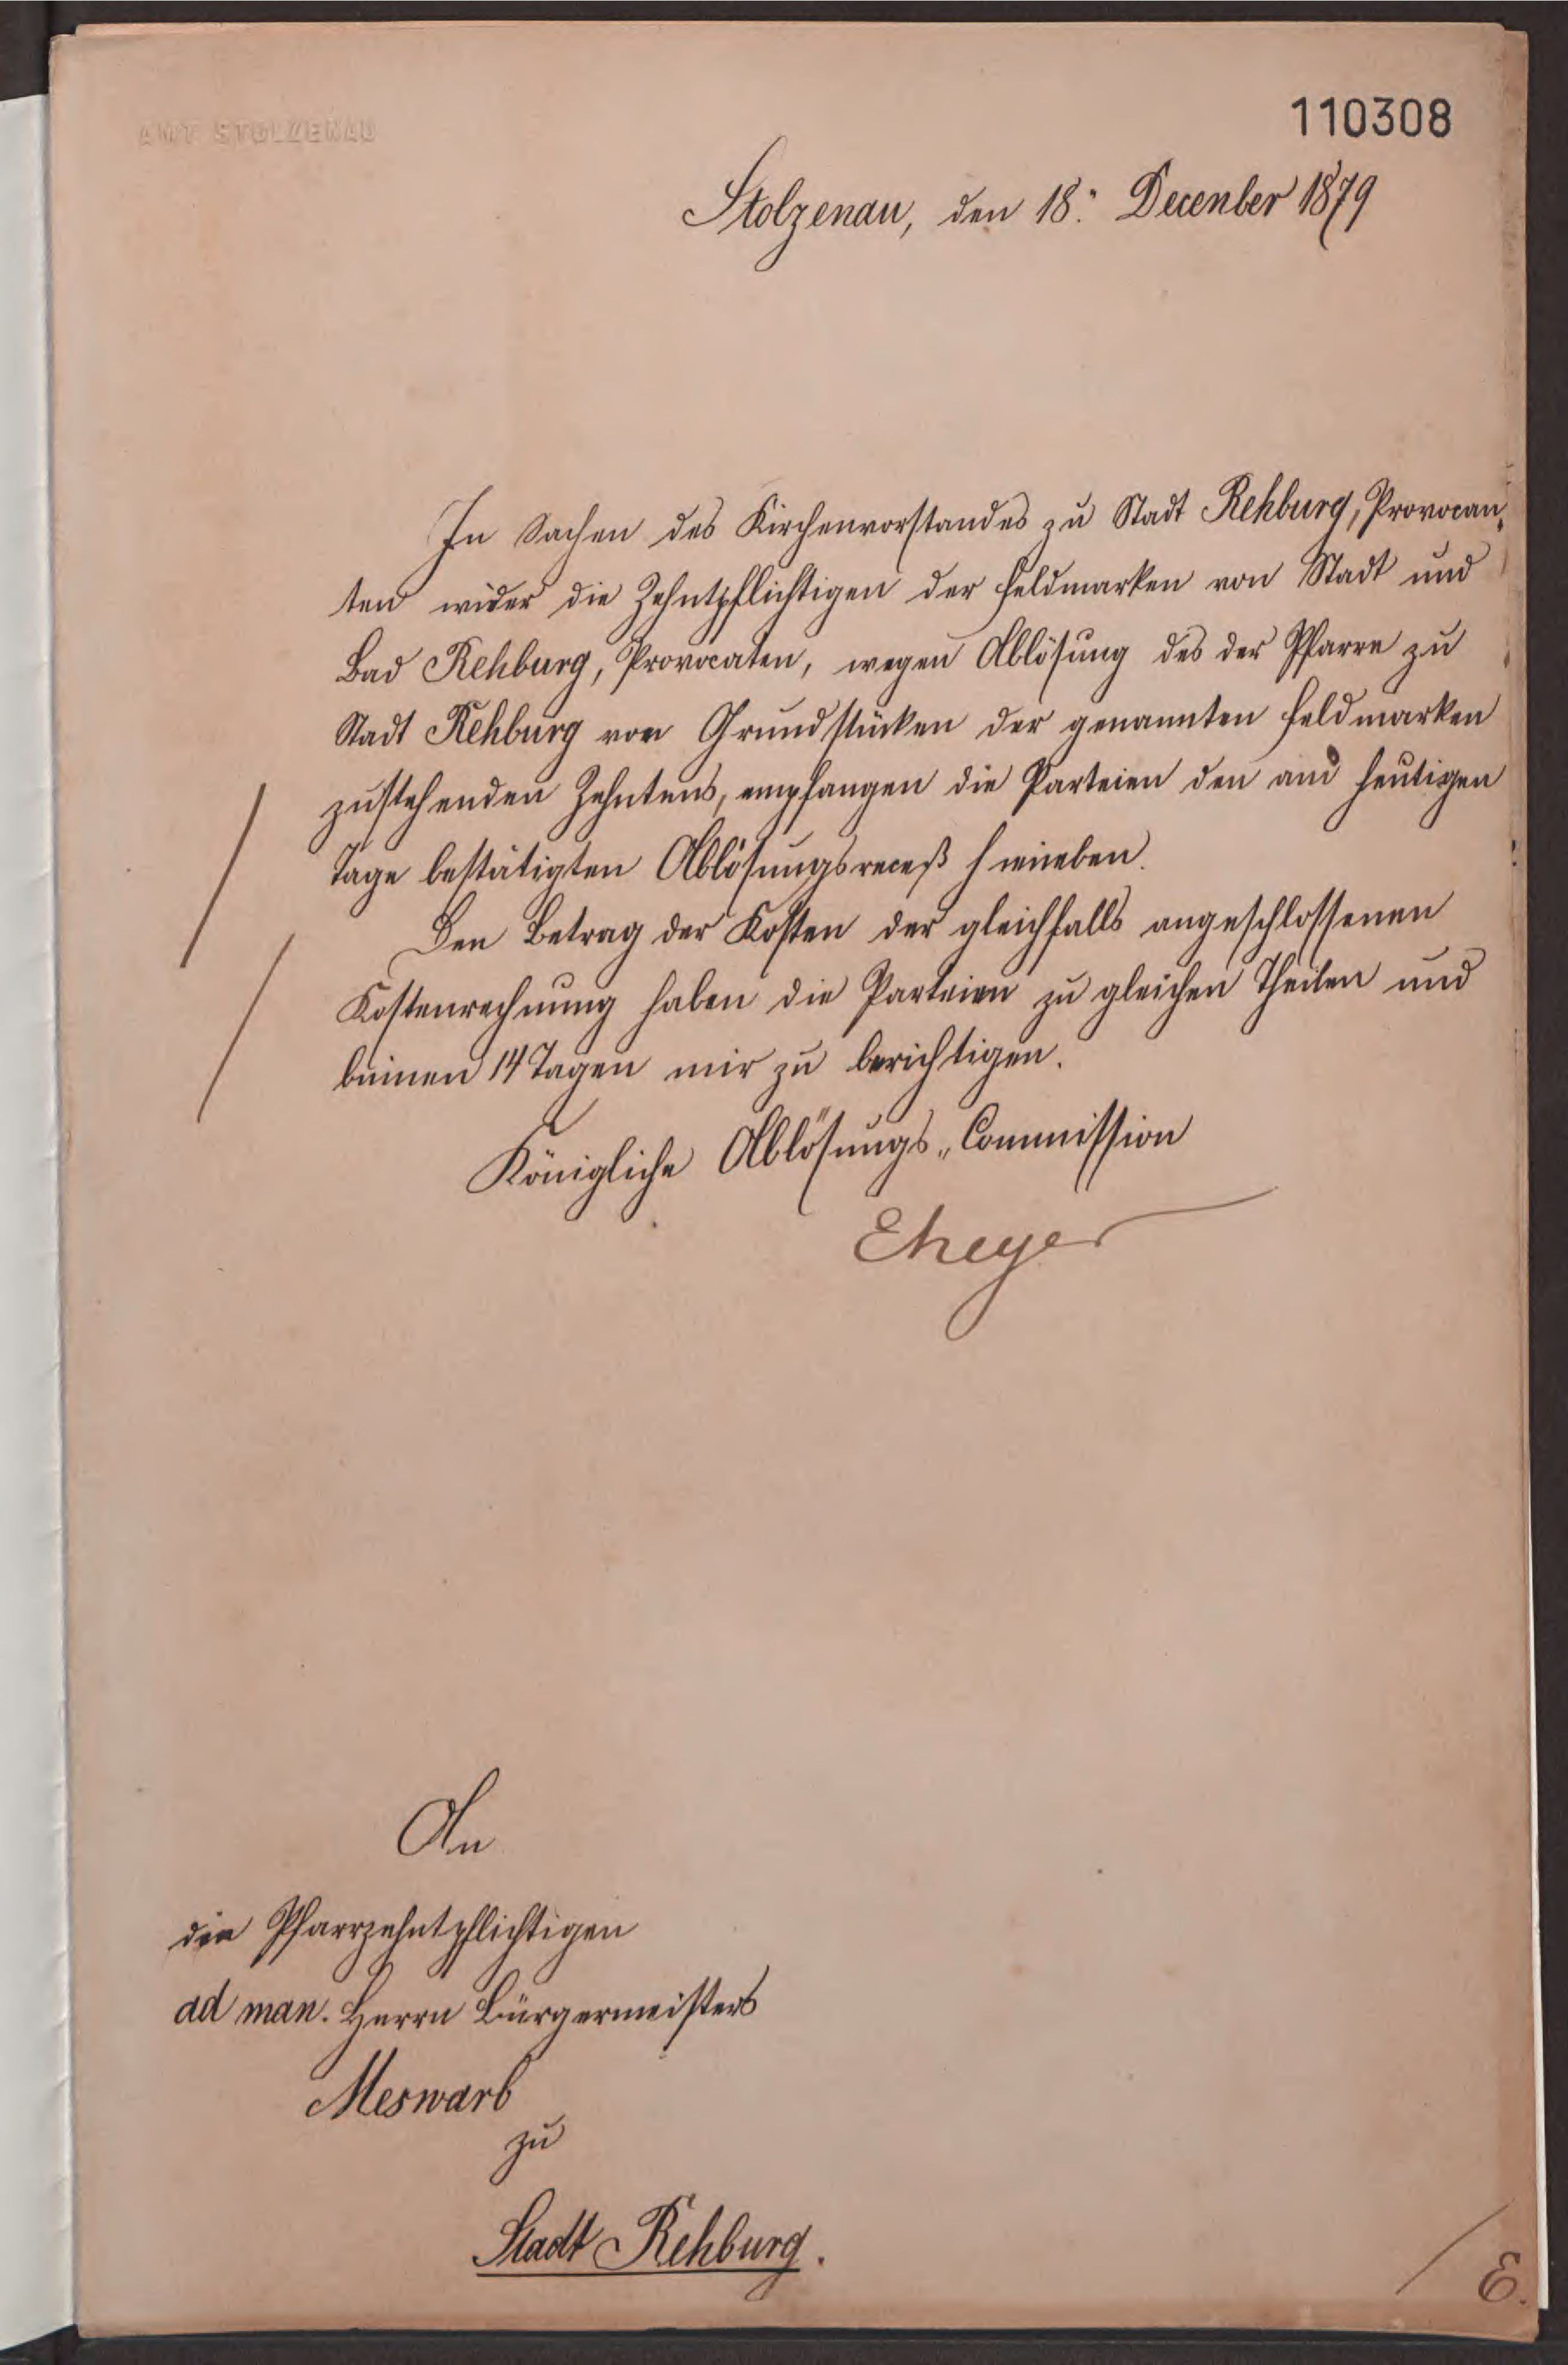 AMT STOLZENAU
110308
Stolzenau, den 18. December 1879
In Sachen des Kirchenvorstandes zu Stadt Rehburg, Provocan-
ten wider die Zehntpflichtigen der Feldmarken von Stadt und
Bad Rehburg, Provocaten, wegen Ablösung des der Pfarre zu
Stadt Rehburg von Grundstücken der genannten Feldmarken
zustehenden Zehntens, empfangen die Parteien den am heutigen
Tage bestätigten Ablösungsreceß hieneben.
Den Betrag der Kosten der gleichfalls angeschlossenen
Kostenrechnung haben die Parteien zu gleichen Theilen und
binnen 14 Tagen mir zu berichtigen.
Königliche Ablösungs-Commission
An
die Pfarrzehntpflichtigen
ad man. Herrn Bürgermeisters
Meswarb
zu
Stadt Rehburg.
E.